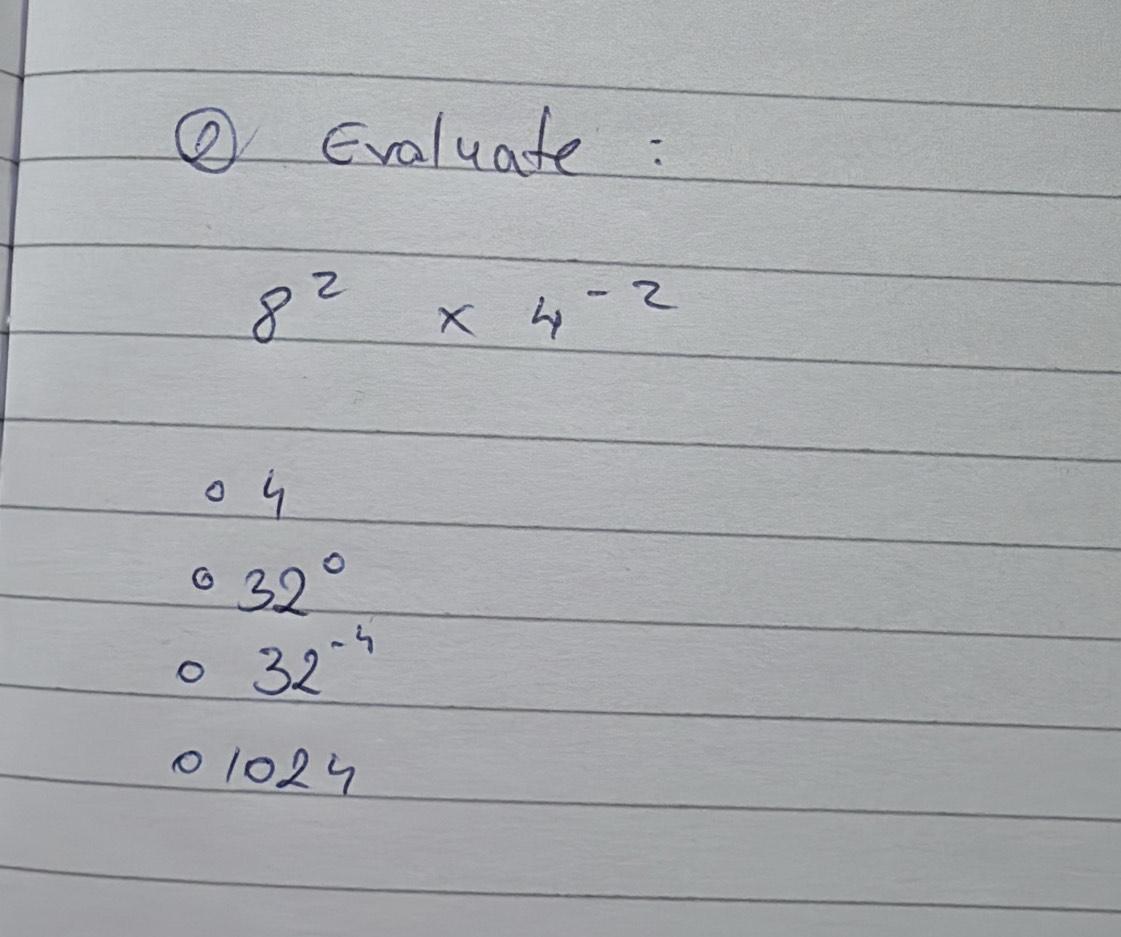 ② Evaluate :
8² × 4⁻²
○ 4
○ 32⁰
○ 32⁻⁴
○ 1024